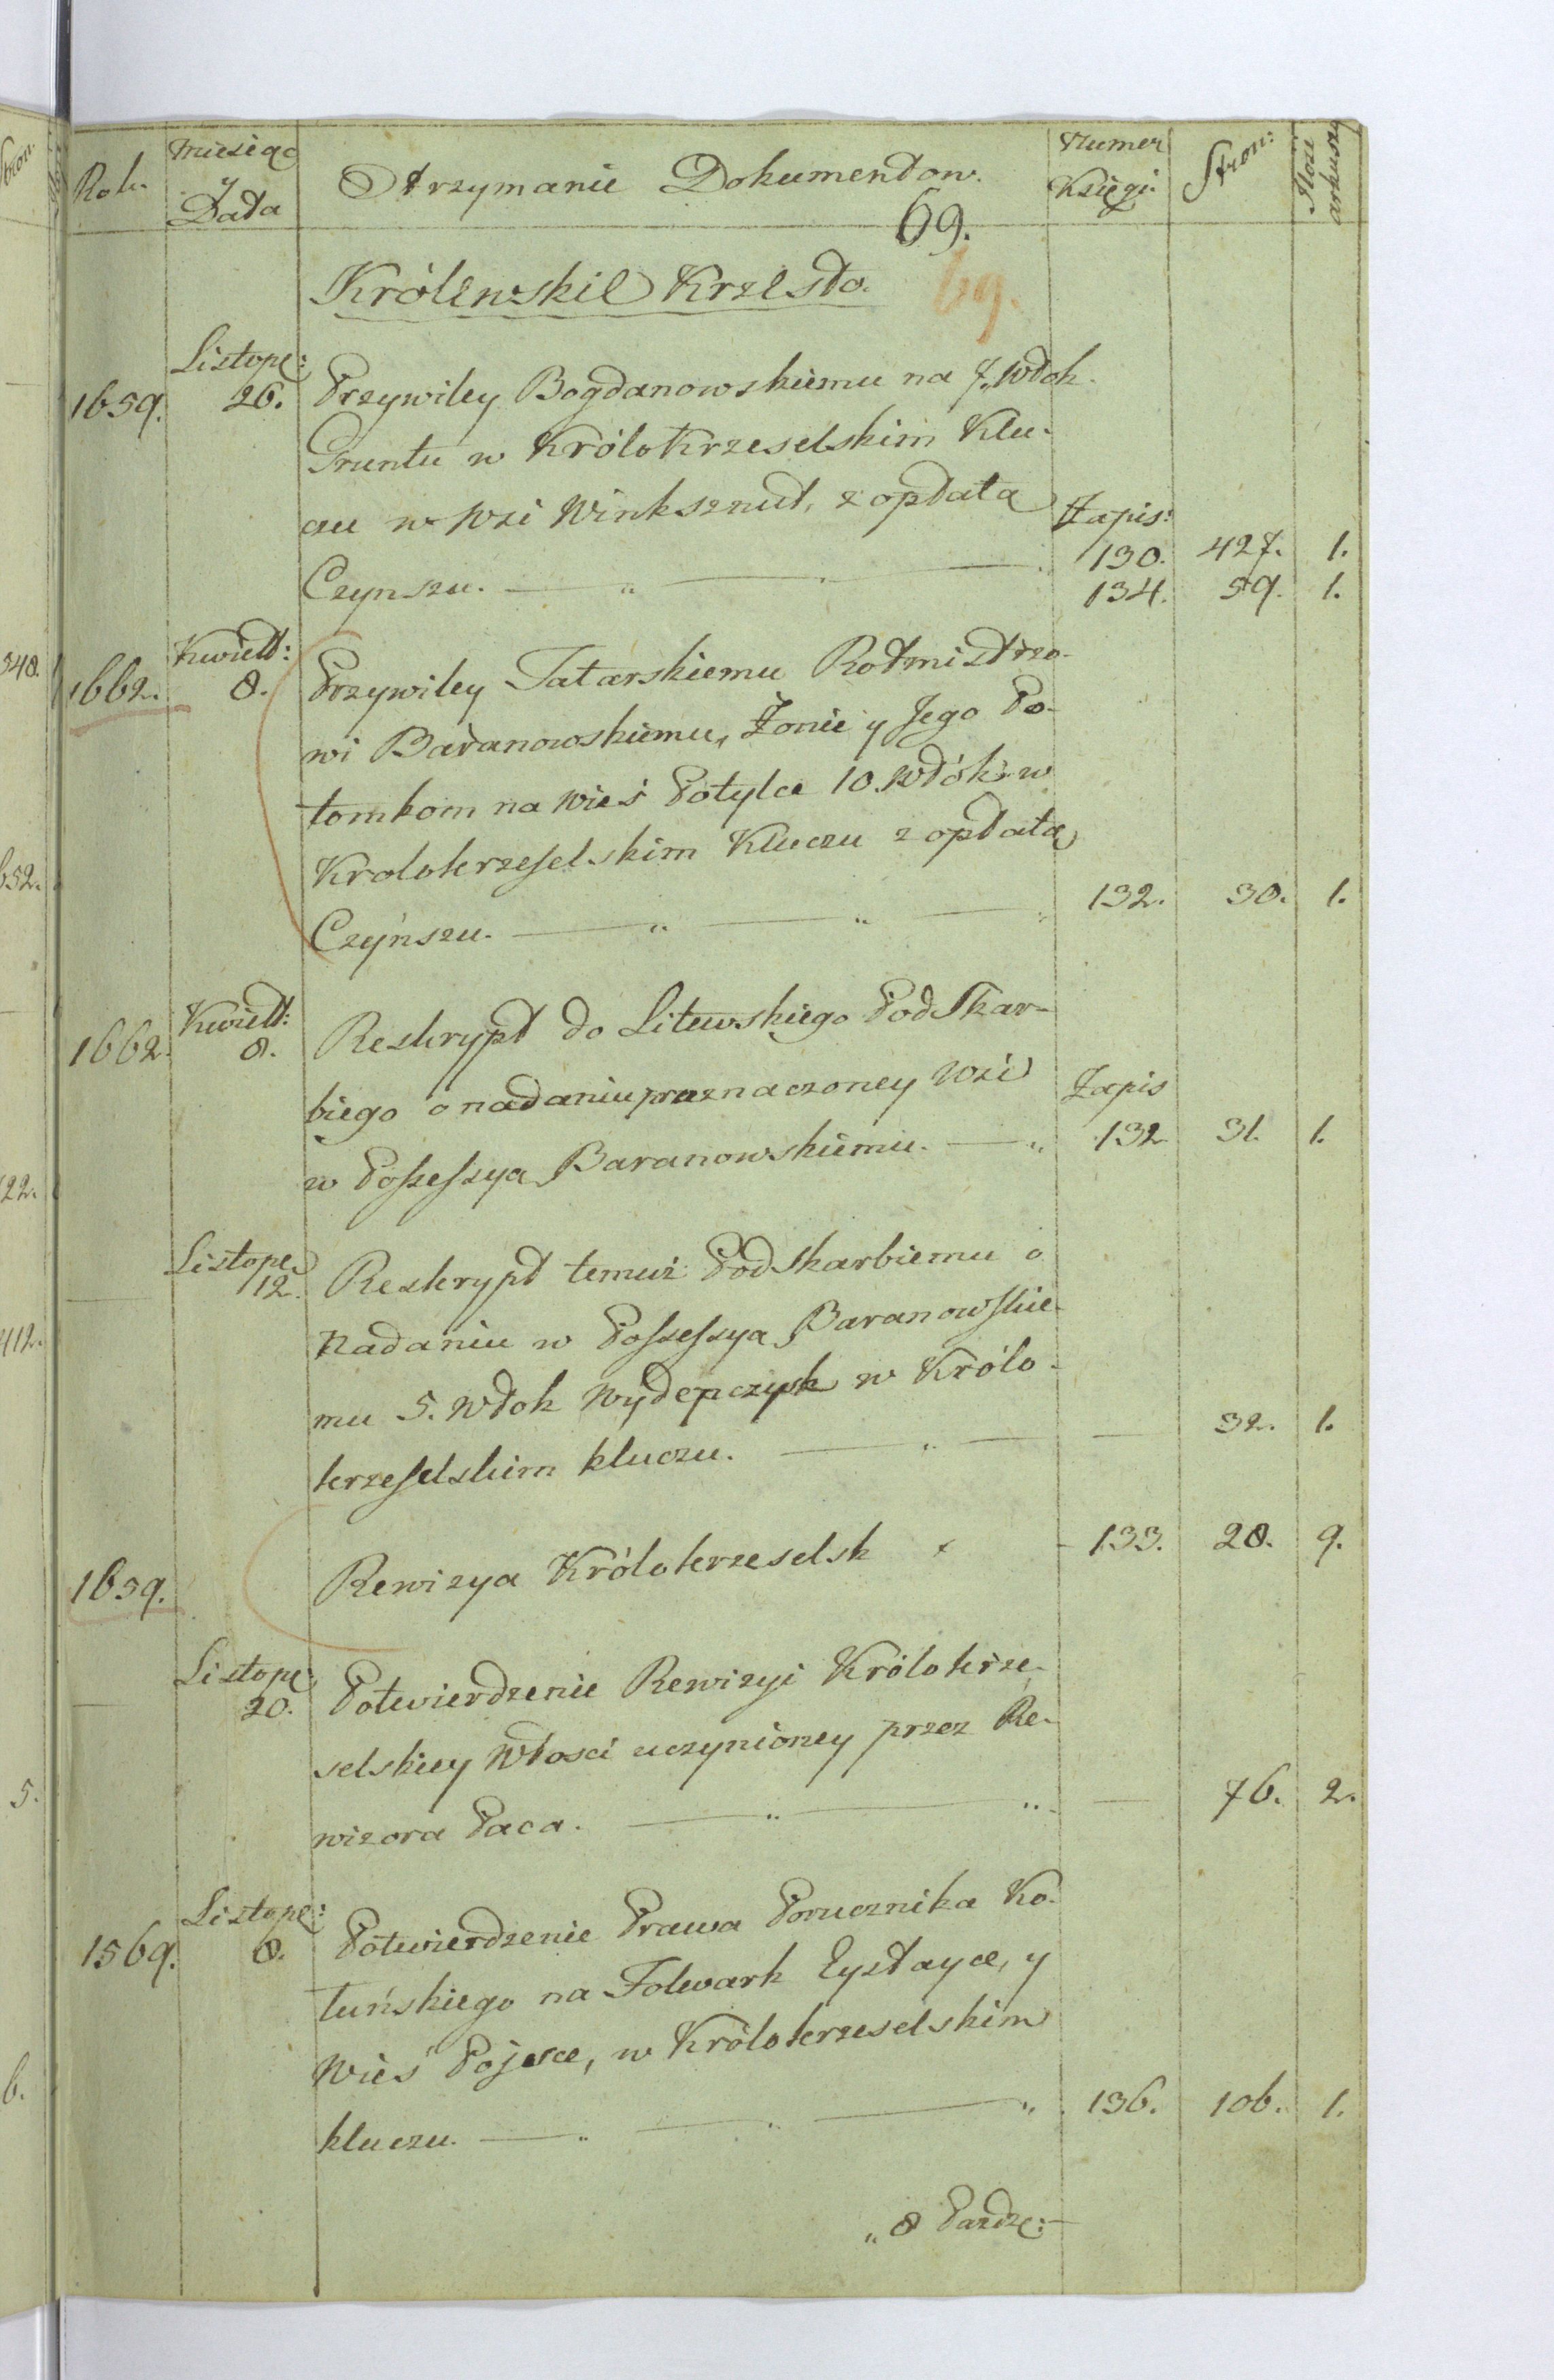 Rok. Miesiąc y Data Otrzymanie Dokumentow. Numer Księgi. Stron: Ilość arkuszy
69.
69.
Królewskie Krzesło.
1659. Listope: 26. Przywiley Bogdanowskiemu na 7. Włok.
Gruntu w Królokrzeselskim Klu-
czu w Wsi Winksznud, z opłatą Zapis:
Czynszu. 130. 427. 1.
134. 59. 1.
1662. Kwiet: 8. Przywiley Tatarskiemu Rotmistrzo-
wi Baranowskiemu, Żonie y Jego Po-
tomkom na wieś Potylce 10. Włók w
Krolokrzeselskim Kluczu z opłatą
Czyńszu. 132. 30. 1.
1662. Kwiet: 8. Reskrypt do Litewskiego Podskar-
biego o nadaniu przeznaczoney Wsi Zapis
w Possessyą Baranowskiemu. 132 31. 1.
Listope 12. Reskrypt temuż Podskarbiemu o
Nadaniu w Possessyą Baranowskie-
mu 5. Włok Wydepczysk w Królo-
krzeselskim kluczu. 32. 1.
1659. Rewizya Królokrzeselsk 133. 28. 9.
Listope: 20. Potwierdzenie Rewizyi Królokrze-
selskiey Włosci uczynioney przez Re-
wizora Paca. 76. 2.
1569. Listope: 8. Potwierdzenie Prawa Porucznika Ko-
tuńskiego na Folwark Eystayce, y
Wieś Pojesce, w Królokrzeselskim
kluczu. 136. 106. 1.
„ 8 Pazdze:
540.
652.
122.
412.
5.
6.